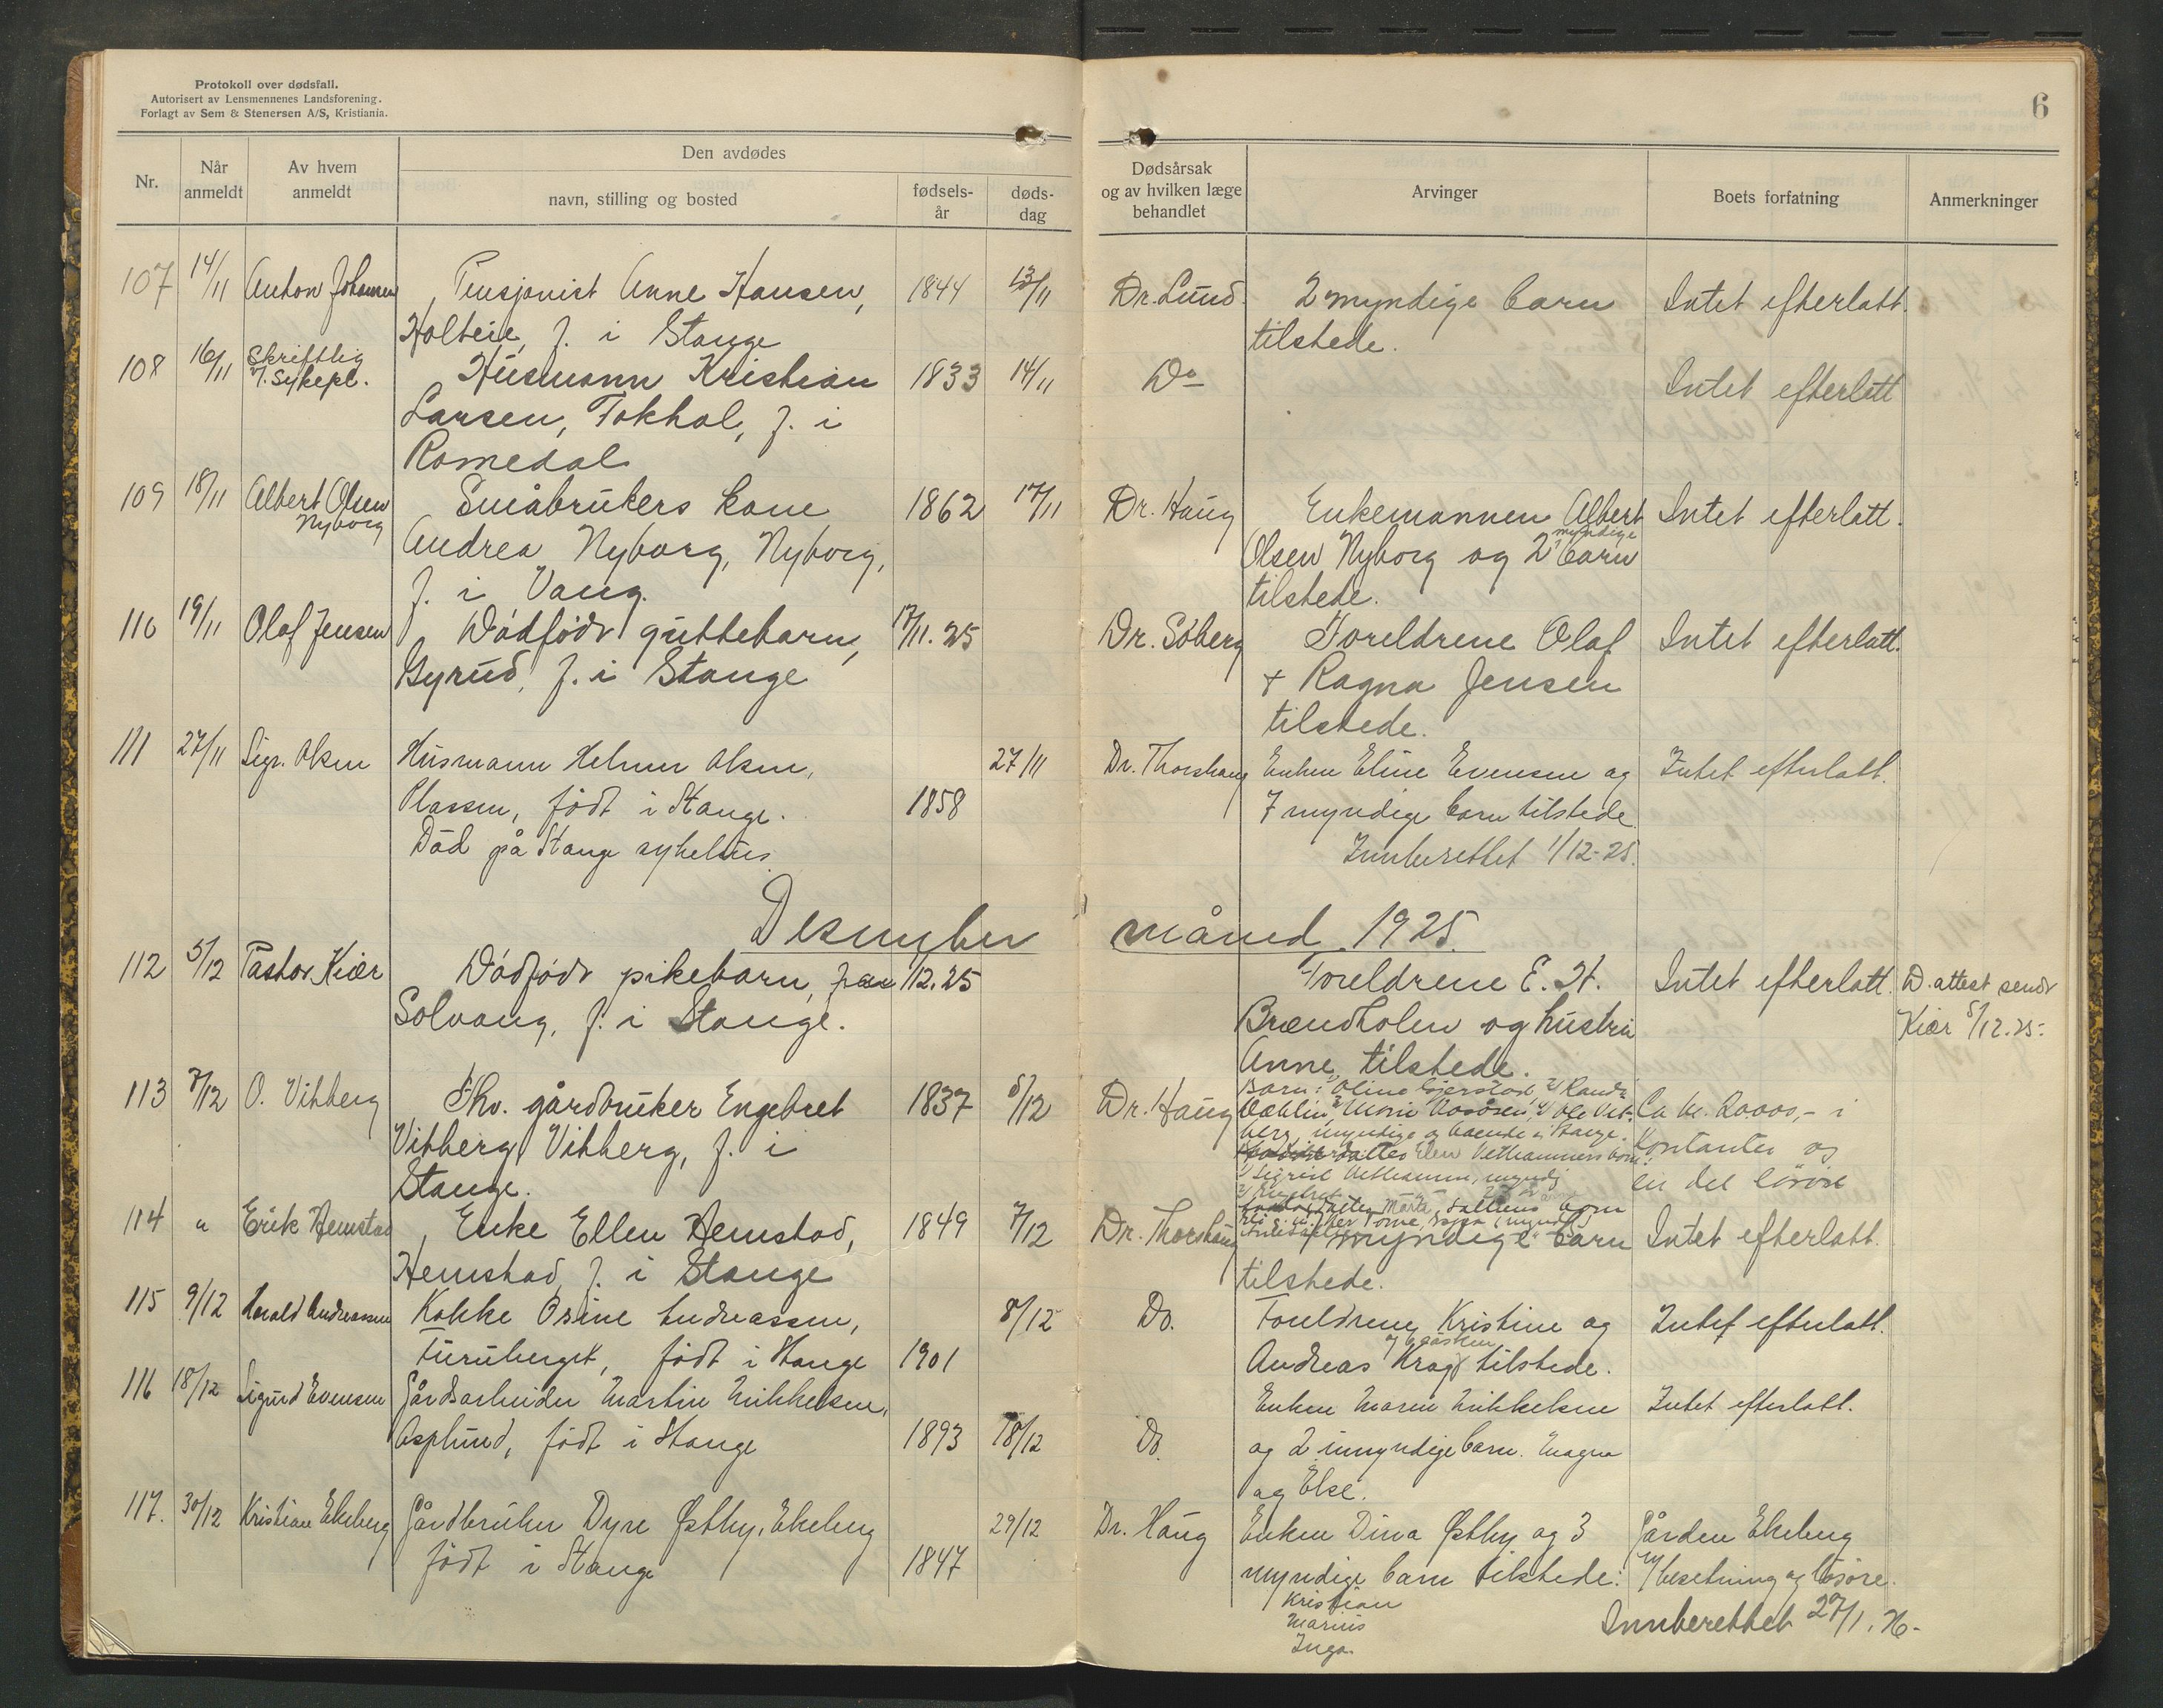 Protokoll over dødsfall.
Autorisert av Lensmennenes Landsforening.
Forlagt av Sem & Stenersen A/S, Kristiania.
6
Nr.
Når anmeldt
Av hvem anmeldt
Den avdødes
navn, stilling og bosted
fødsels-år
døds-dag
Dødsårsak og av hvilken læge behandlet
Arvinger
Boets forfatning
Anmerkninger
107 14/11 Anton Johansen Pensjonist Anne Hansen, 1844 13/11 Dr. Lund 2 myndige barn Intet efterlatt.
Holteie, f. i Stange tilstede.
108 16/11 Skriftlig Husmann Kristian 1833 14/11 Do Intet efterlatt
v/. Sykepl. Larsen, Tokhol, f. i
Romedal
109 18/11 Albert Olsen Småbrukers kone 1862 17/11 Dr. Haug Enkemannen Albert Intet efterlatt.
Nyborg Andrea Nyborg, Nyborg, Olsen Nyborg og 2 myndige barn
f. i Vang. tilstede.
110 19/11 Olaf Jensen Dødfødt guttebarn, 17/11. 25 Dr. Søberg Foreldrene Olaf Intet efterlatt.
Byrud, f. i Stange + Ragna Jensen
tilstede.
111 27/11 Sigr. Olsen Husmann Helmer Olsen, 27/11 Dr. Thorshaug Enken Eline Evensen og Intet efterlatt.
Plassen, født i Stange. 1858 7 myndige barn tilstede.
Død på Stange sykehus Innberettet 1/12-25.
Desember måned 1925.
112 5/12 Pastor Kiær Dødfødt pikebarn, 1/12. 25 Foreldrene E. H. Intet efterlatt. D. attest sendt
Solvang, f. i Stange. Brændholen og hustru Kiær 5/12. 25.
Anne, tilstede.
113 7/12 O. Vihberg Fhv. gårdbruker Engebret 1837 5/12 Dr. Haug Barn: Oline Gjerstad, Ca kr. 20000,- i
Vihberg, Vihberg, f. i myndige og boende i Stange. Kontanter og
Stange. en del løsøre
114 " Erik Hemstad Enke Ellen Hemstad, 1849 7/12 Dr. Thorshaug myndige barn Intet efterlatt.
Hemstad, f. i Stange tilstede.
115 9/12 Harald Andreassen Kokke Osine Andreassen, 8/12 Do. Foreldrene Kristine og Intet efterlatt.
Furuberget, født i Stange 1901 Andreas Krag og søsken tilstede.
116 18/12 Sigurd Evensen Gårdsarbeider Martin Mikkelsen, Enken Maren Mikkelsen Intet efterlatt.
Asplund, født i Stange 1893 18/12 Do. og 2 umyndige barn. Magna
og Else.
117. 30/12 Kristian Ekeberg Gårdbruker Dyre Østby, Ekeberg 29/12 Dr. Haug Enken Dina Østby og 3 Gården Ekeberg
født i Stange 1847 myndige barn tilstede: m/ besetning og løsøre.
Kristian
Marius
Inga.
Innberettet 27/1. 26.